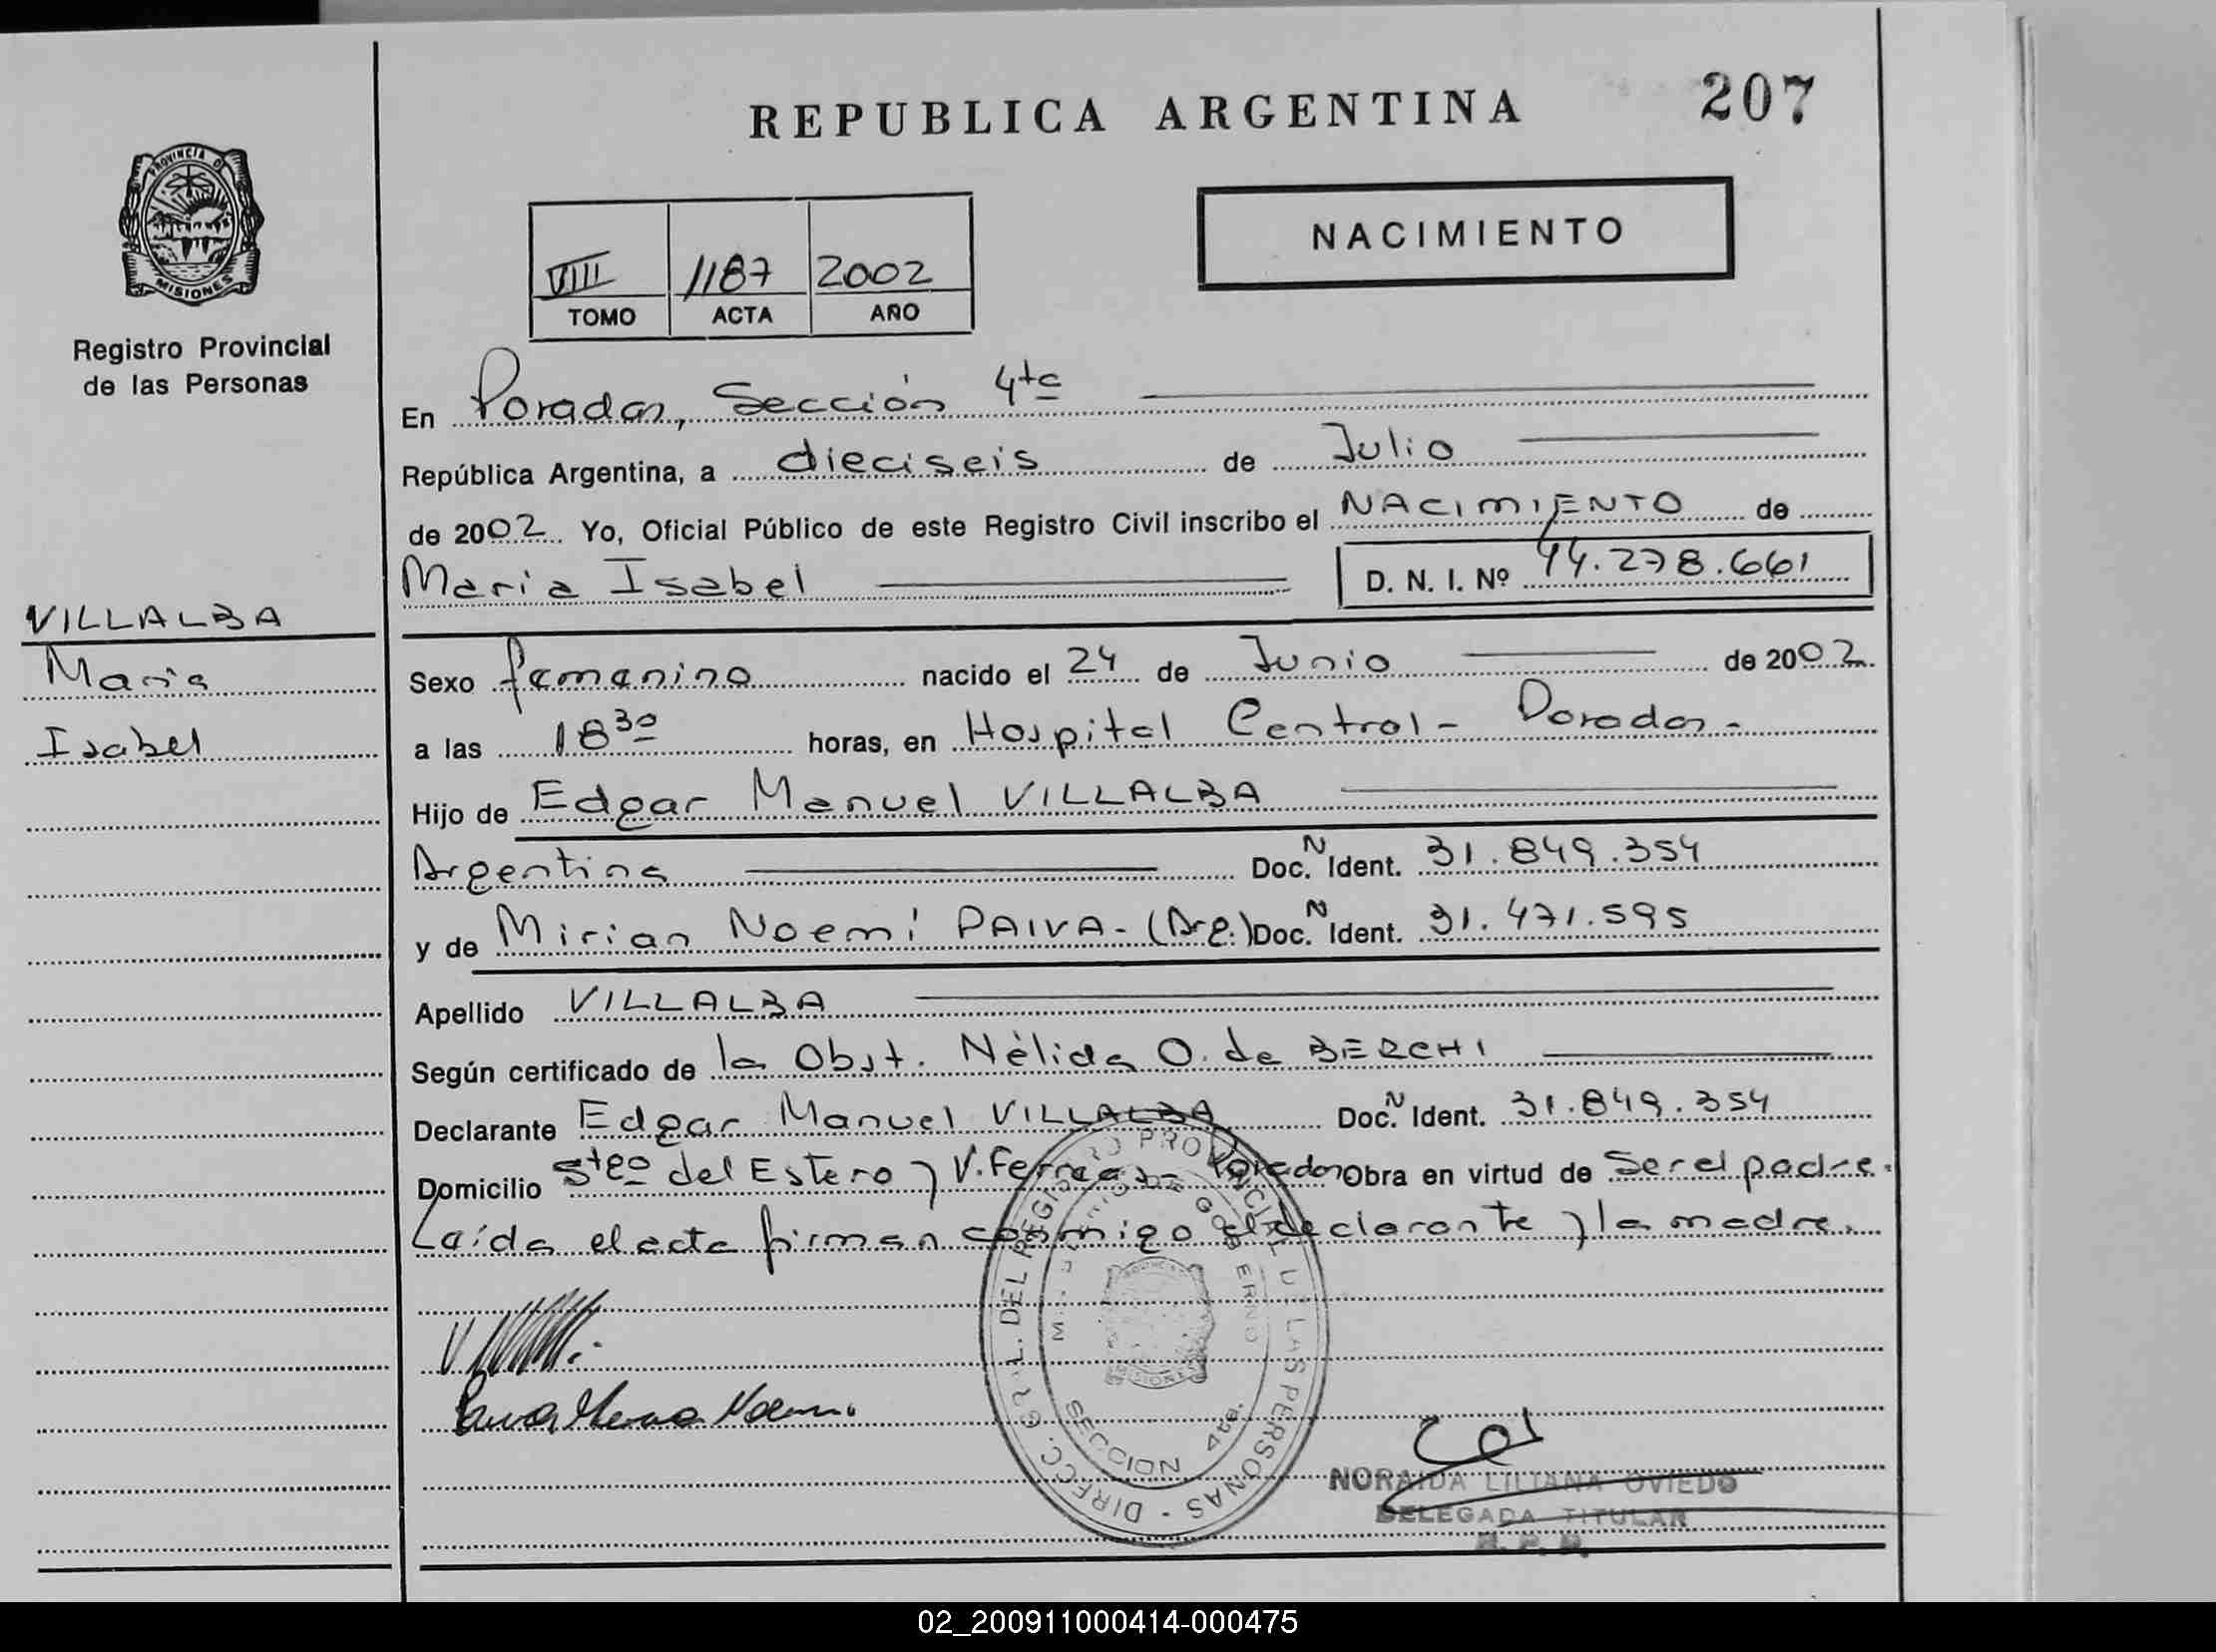 REPUBLICA ARGENTINA
207
PROVINCIA DE
MISIONES
Registro Provincial
de las Personas
NACIMIENTO
VIII 1187 2002
TOMO ACTA AÑO
En Posadas, Sección 4ta
República Argentina, a dieciseis de Julio
de 2002 Yo, Oficial Público de este Registro Civil inscribo el NACIMIENTO de
Maria Isabel D. N. I. Nº 44.278.661
VILLALBA
Maria
Isabel
Sexo femenino nacido el 24 de Junio de 2002
a las 18 30 horas, en Hospital Central - Posadas -
Hijo de Edgar Manuel VILLALBA
Argentina Doc. N Ident. 31.849.354
y de Mirian Noemí PAIVA - (Arg.) Doc. N Ident. 31.471.595
Apellido VILLALBA
Según certificado de la Obst. Nélida O. de BERCHI
Declarante Edgar Manuel VILLALBA Doc. N Ident. 31.849.354
Domicilio Stgo del Estero y V. Posadas Obra en virtud de Ser el padre.
Laída el acta firman conmigo el declarante y la madre.
DIRECC. GRAL. DEL REGISTRO PROVINCIAL DE LAS PERSONAS -
MINISTERIO DE GOBIERNO
SECCION 4ta.
MISIONES
Noemi
NORAIDA LILIANA OVIEDO
DELEGADA TITULAR
R. P. P.
02_200911000414-000475